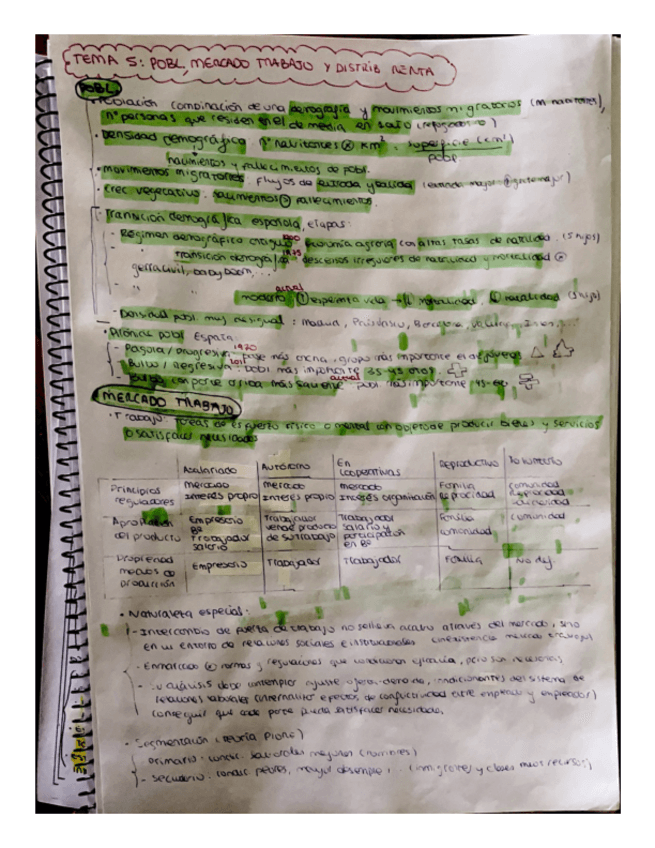 TEMA 5: POBL, MERCADO TRABAJO Y DISTRIB RENTA
POBL
combinación de una demografía y movimientos migratorios
nº personas que residen en el de media en 1 año
· Densidad demográfica: nº habitantes x km² = superficie (km²)
pobl
nacimientos y fallecimientos de pobl.
· movimientos migratorios: flujos de entrada y salida
· crec vegetativo: nacimientos > fallecimientos.
· Transición demográfica española, etapas:
1900
- Régimen demográfico antiguo: economía agraria con altas tasas de natalidad. (5 hijos)
1975
- transición demográfica: descensos irregulares de natalidad y mortalidad
guerra civil, baby boom, ...
actual
- " " moderno: ↑ esperanza vida → ↓ mortalidad, ↓ natalidad
- Densidad pobl. muy desigual: Madrid, País Vasco, Barcelona, Valencia
pobl España
1970
- Pagoda / progresiva: base más ancha, grupo más importante el de jóvenes
- Bulbo / Regresiva: pobl más importante 35-45 años.
actual
pobl más importante 45-60
MERCADO TRABAJO
· Trabajo: tareas de esfuerzo físico o mental con objeto de producir bienes y servicios
o satisfacer necesidades
Asalariado Autónomo En cooperativas Reproductivo Voluntario
Principios reguladores mercado interés propio mercado interés propio mercado interés organización Familia reciprocidad comunidad reciprocidad solidaridad
Apropiación del producto Empresario Bº Trabajador salario Trabajador vende producto de su trabajo Trabajador salario y participación en Bº Familia comunidad comunidad
Propiedad medios de producción Empresario Trabajador Trabajador Familia No def.
· Naturaleza especial:
- Intercambio de fuerza de trabajo no se lleva a cabo a través del mercado, sino
en un entorno de relaciones sociales e institucionales
- Enmarcado en normas y regulaciones que condicionan eficacia, pero son necesarias
- Su análisis debe contemplar ajuste oferta-demanda, condicionantes del sistema de
relaciones laborales
conseguir que cada parte pueda satisfacer necesidades.
· Segmentación (teoría Piore)
- primario: condic. laborales mejores (hombres)
- secundario: condic peores, mayor desempleo